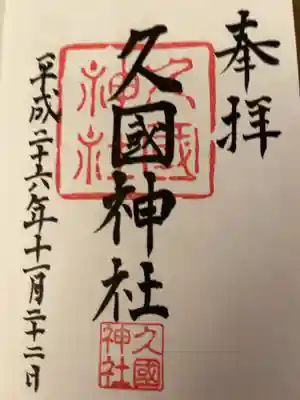 奉拝
久國神社
久國神社
久國神社
平成二十六年十一月二十二日